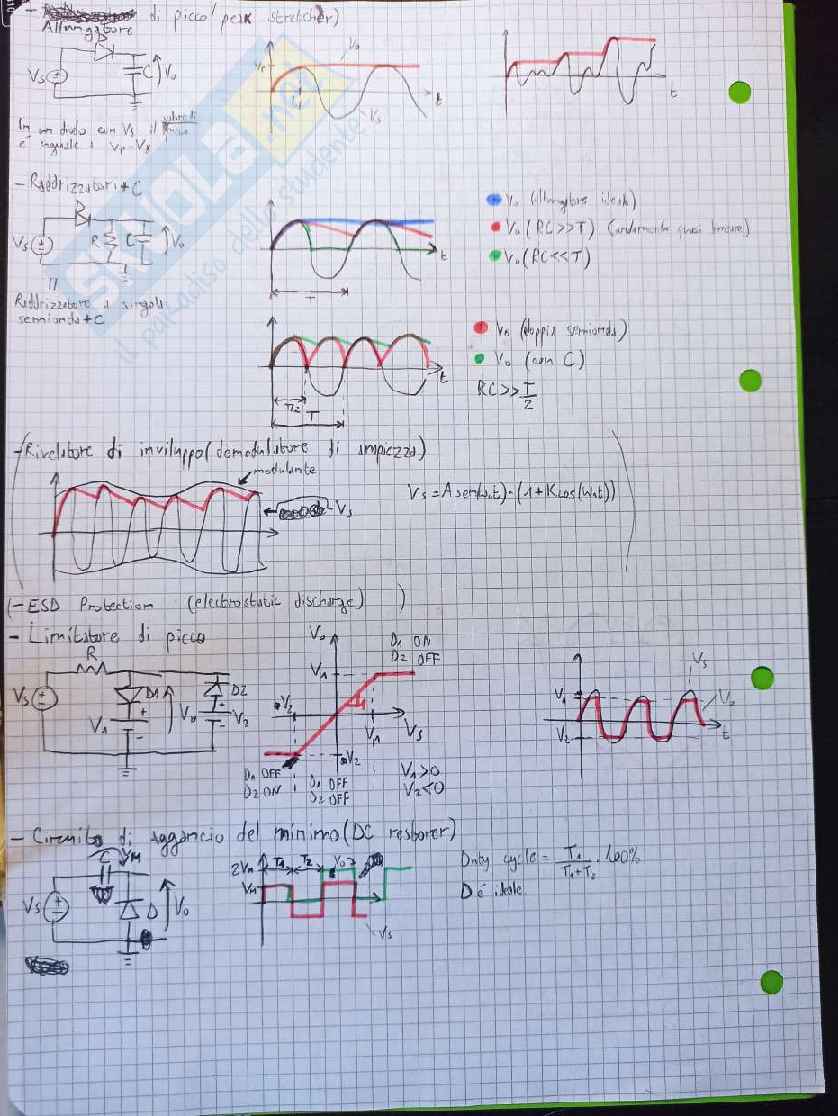 - di picco (peak stretcher)
Allungatore
D
Vs
C
Vo
Vo
Vp
t
Vs
t
In un diodo con Vs il
è uguale a Vp - Vs
SKUOLA.net
il paradiso dello studente
- Raddrizzatori + C
D
Vs
R
C
Vo
Raddrizzatore a singola
semionda + C
t
T
Vo (allungatore ideale)
Vo (RC>>T) (andamento quasi lineare)
Vo (RC<<T)
t
T/2
T
VR (doppia semionda)
Vo (con C)
RC>> T/2
(- Rivelatore di inviluppo (demodulatore di ampiezza)
modulante
Vs
Vs = A sen(ωt)·(1+Kcos(ωmt))
(- ESD Protection (electrostatic discharge) )
- Limitatore di picco
R
Vs
D1
V1
+
-
Vo
D2
+
-
V2
Vo
V1
V2
1
V1
Vs
V2
D1 ON
D2 OFF
D1 OFF
D2 ON
D1 OFF
D2 OFF
V1>0
V2<0
Vs
V1
Vo
V2
t
- Circuito di aggancio del minimo (DC restorer)
C
VM
Vs
D
Vo
2VM
VM
T1
T2
Vo
Vs
Duty cycle = T1/(T1+T2) · 100%
D è ideale